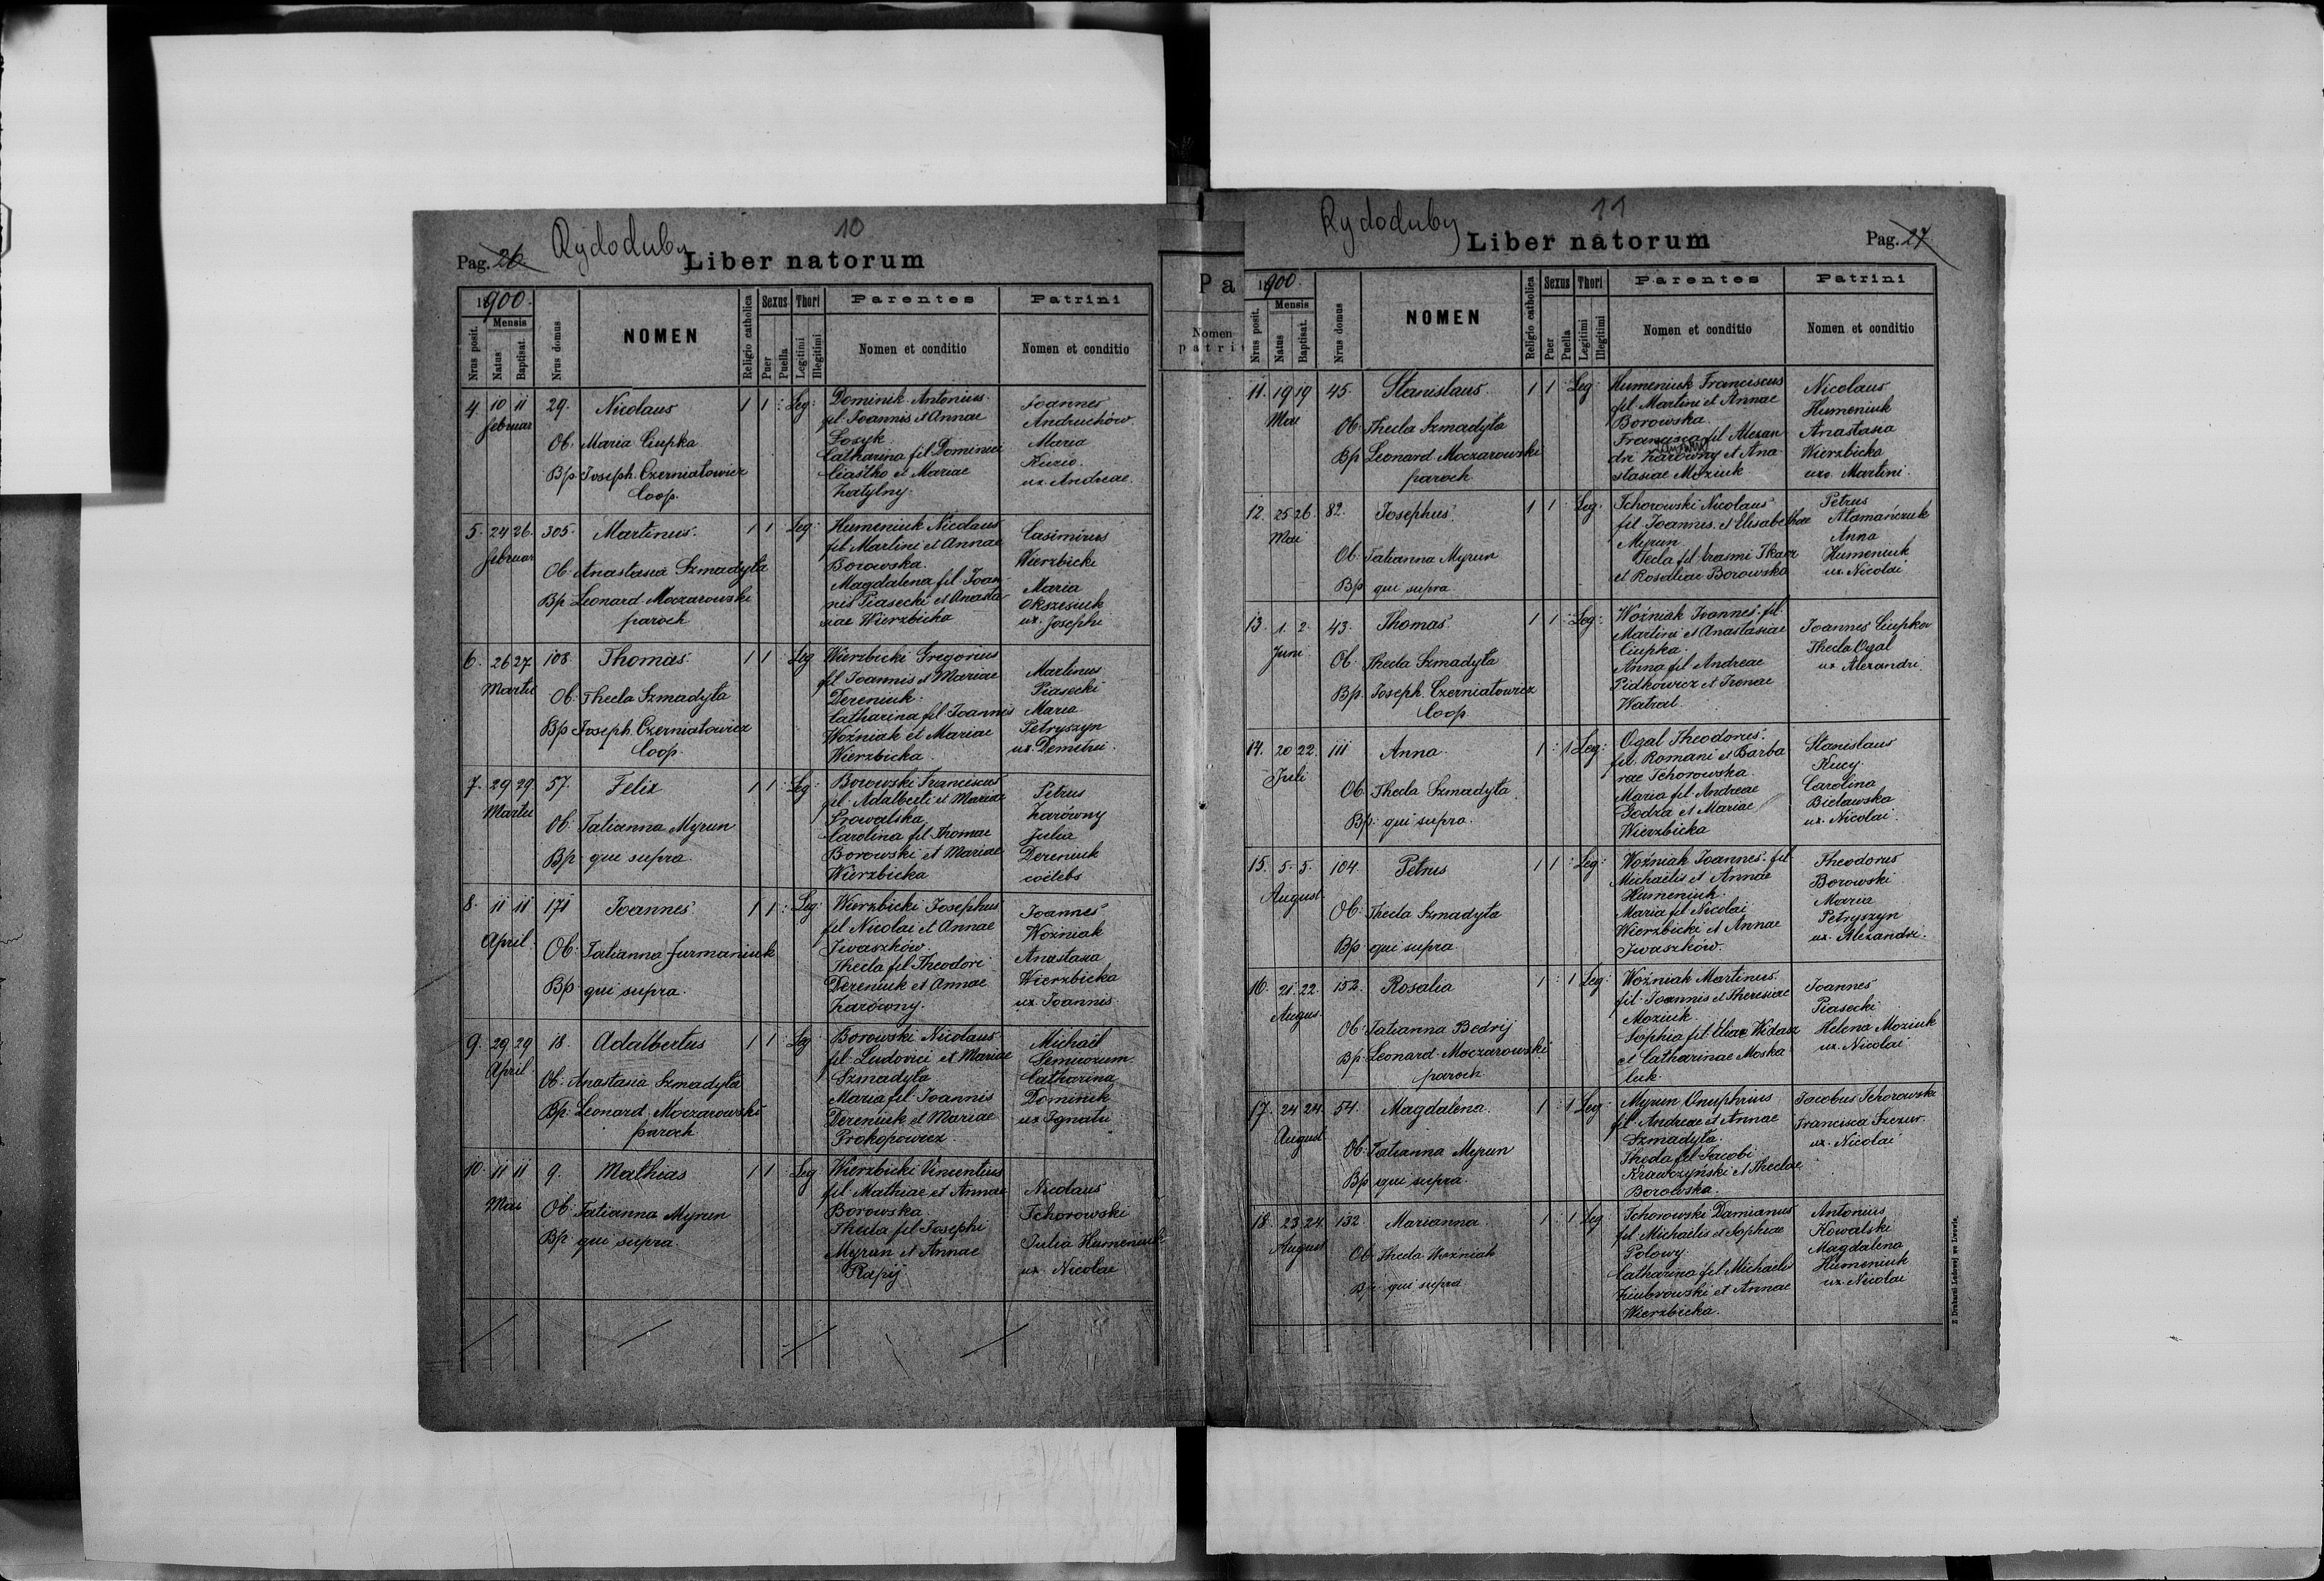 Pag. 26 Rydoduby 10
Liber natorum
1900.
Nrus posit.
Mensis
Natus
Baptisat.
Nrus domus
NOMEN
Religio catholica
Sexus
Puer
Puella
Thori
Legitimi
Illegitimi
Parentes
Nomen et conditio
Patrini
Nomen et conditio
4. 10 11 29. Nicolaus 1 1 : Leg:
Februar
Ob. Maria Ciupka
Bp. Joseph. Czerniatowicz
Coop.
Dominik Antonius
fil Joannis et Annae
Losyk
Catharina fil Dominici
Ciastko et Mariae
Zatylny.
Joannes
Andruchów
Maria
Kuzio.
ux. Andreae.
5. 24 26. 305. Martinus. 1 1 Leg:
Februar
Ob. Anastasia Szmadyła
Bp. Leonard Moczarowski
paroch
Humeniuk Nicolaus
fil Martini et Annae
Borowska.
Magdalena fil Joan-
nis Piasecki et Anasta-
siae Wierzbicka
Casimirus
Wierzbicki
Maria
Okszesiuk
ux. Josephi
6. 26 27 108 Thomas. 1 1 Leg
Martii
Ob. Thecla Szmadyła
Bp Joseph. Czerniatowicz
Coop.
Wierzbicki Gregorius
fil Joannis et Mariae
Dereniuk.
Catharina fil Joannis
Woźniak et Mariae
Wierzbicka.
Martinus
Piasecki
Maria
Petryszyn
ux. Demetrii.
7. 29 29. 57. Felix 1 1 : Leg:
Martii
Ob. Tatianna Myrun
Bp. qui supra.
Borowski Franciscus
fil. Adalberti et Mariae
Growalska
Carolina fil Thomae
Borowski et Mariae
Wierzbicka
Petrus
Zarówny
Julia
Dereniuk
coelebs
8. 11 11 171 Joannes 1 1 : Leg:
April.
Ob. Tatianna Furmaniuk
Bp qui supra.
Wierzbicki Josephus
fil Nicolai et Annae
Iwaszków.
Thecla fil Theodori
Dereniuk et Annae
Zarówny.
Joannes
Woźniak
Anastasia
Wierzbicka
ux. Joannis
9. 29 29 18. Adalbertus 1 1 Leg
April
Ob: Anastasia Szmadyła
Bp: Leonard. Moczarowski
paroch
Borowski Nicolaus.
fil. Ludovici et Mariae
Szmadyła.
Maria fil Joannis
Dereniuk et Mariae
Prokopowicz.
Michaël
Catharina
Dominik
ux Ignatii
10. 11 11 9. Mathias 1 1 : Leg
Mai
Ob. Tatianna Myrun
Bp. qui supra.
Wierzbicki Vincentius
fil. Mathiae et Annae
Borowska.
Thecla fil Josephi
Myrun et Annae
Rapij
Nicolaus
Tchorowski
Julia Humeniuk
ux. Nicolae
Pa
Nomen
patri
Rydoduby 11
Liber natorum Pag. 27
1900.
Nrus posit.
Mensis
Natus
Baptisat.
Nrus domus
NOMEN
Religio catholica
Sexus
Puer
Puella
Thori
Legitimi
Illegitimi
Parentes
Nomen et conditio
Patrini
Nomen et conditio
11. 19 19 45. Stanislaus. 1 1 : Leg:
Mai
Ob. Thecla Szmadyła
Bp. Leonard Moczarowski
paroch
Humeniuk Franciscus
fil. Martini et Annae
Borowska
Francisca fil Alexan-
dri Zarówny et Ana-
stasiae Moziuk.
Nicolaus
Humeniuk
Anastasia
Wierzbicka
uxo. Martini.
12. 25 26. 82. Josephus. 1 1 : Leg.
Mai
Ob. Tatianna Myrun
Bp qui supra.
Tchorowski Nicolaus
fil Joannis. et Elisabethae
Myrun
Tecla fil Erasmi Tkacz
et Rosaliae Borowska
Petrus
Atamańczuk
Anna
Humeniuk
ux. Nicolai
13. 1. 2. 43. Thomas 1 1 : Leg:
Juni
Ob. Thecla Szmadyła
Bp. Joseph. Czerniatowicz
Coop.
Woźniak Joannes. fil.
Martini et Anastasiae
Ciupka.
Anna fil Andreae
Pidkowicz et Irenae
Watral.
Joannes Ciupka
Thecla Ogal
ux Alexandri
14. 20 22. 111 Anna. 1 : 1 Leg:
Juli
Ob. Thecla Szmadyła
Bp: qui supra.
Ogal Theodorus.
fil. Romani et Barba
rae Tchorowska.
Maria fil Andreae
Godza et Mariae
Wierzbicka
Stanislaus
Kucy.
Carolina
Bielawska
ux. Nicolai.
15. 5. 5. 104. Petrus 1 1 : Leg:
August
Ob. Thecla Szmadyła
Bp. qui supra.
Woźniak Joannes. fil
Michaëlis et Annae
Humeniuk.
Maria fil Nicolai
Wierzbicki et Annae
Iwaszków.
Theodorus
Borowski
Maria
Petryszyn
ux. Alexandri.
16. 21 22. 152. Rosalia 1 : 1 Leg:
Augus
Ob. Tatianna Bedrij
Bp. Leonard. Moczarowski
paroch
Woźniak Martinus.
fil. Joannis et Theresiae
Moziuk.
Sophia fil Eliae Widasz
et Catharinae Moska
luk.
Joannes
Piasecki
Helena Moziuk
ux. Nicolai
17. 24 24. 54. Magdalena. 1 : 1 Leg:
August
Ob. Tatianna Myrun
Bp qui supra.
Myrun Onuphrius
fil. Andreae et Annae
Szmadyła.
Thecla fil Jacobi
Krawczyński et Theclae
Borowska.
Jacobus Tchorowski
Francisca Szczur.
ux. Nicolai
18. 23 24. 132. Marianna. 1 : 1 Leg
August
Ob. Thecla Woźniak
Bp. qui supra
Tchorowski Damianus
fil Michaëlis et Sophiae
Polowy.
Catharina fil Michaëlis
Ziubrowski et Annae
Wierzbicka.
Antonius
Kowalski
Magdalena
Humeniuk
ux. Nicolai
Z Drukarni Ludowej we Lwowie.